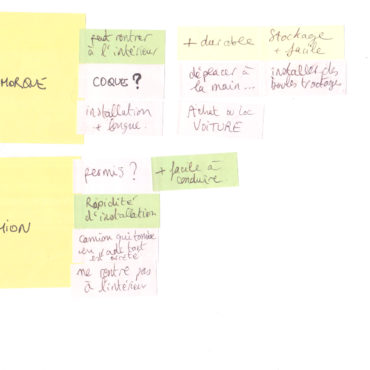 peut rentrer
à l'intérieur
+ durable
Stockage
+ facile
MORQUE
COQUE ?
déplacer à
la main...
installer des
installation
+ longue.
Achat ou loc
VOITURE
permis ?
+ facile à
conduire
MION
Rapidité
d'installation
camion qui tombe
en rade tout
est arrêté
ne rentre pas
à l'intérieur